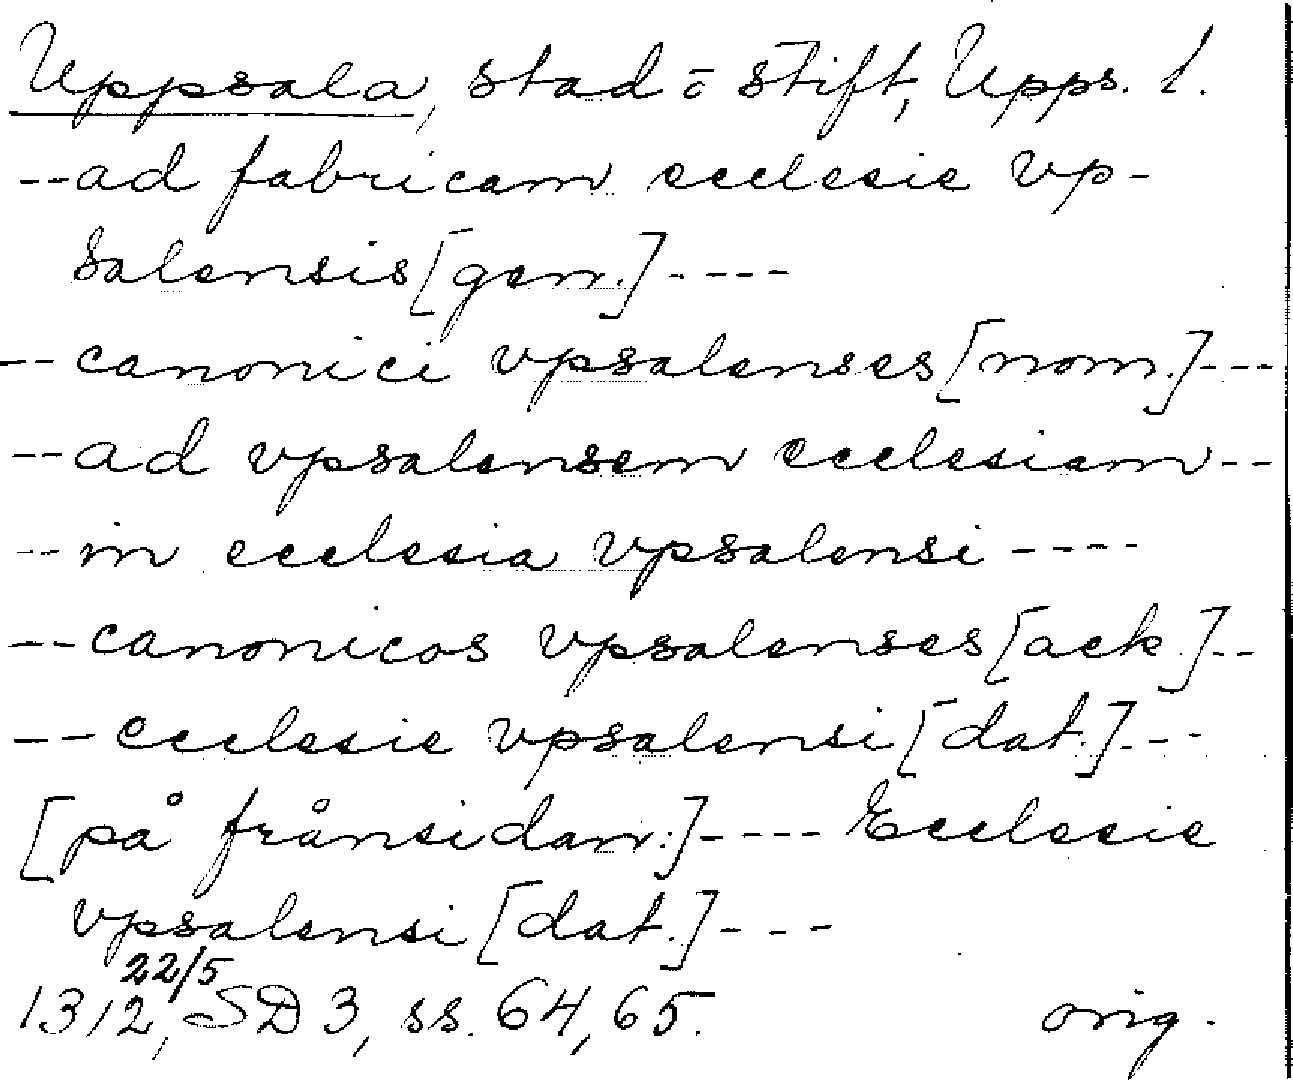 Uppsala, stad ō stift, Upps. l.
--ad fabricam ecclesie vp-
salensis [gen.]----
--canonici vpsalenses [nom.]---
--ad vpsalensem ecclesiam--
--in ecclesia vpsalensi----
--canonicos vpsalenses [ack.]--
--ecclesie vpsalensi [dat.]---
[på frånsidan:]---- Ecclesie
vpsalensi [dat.]---
22/5
1312, SD 3, ss. 64, 65. orig.